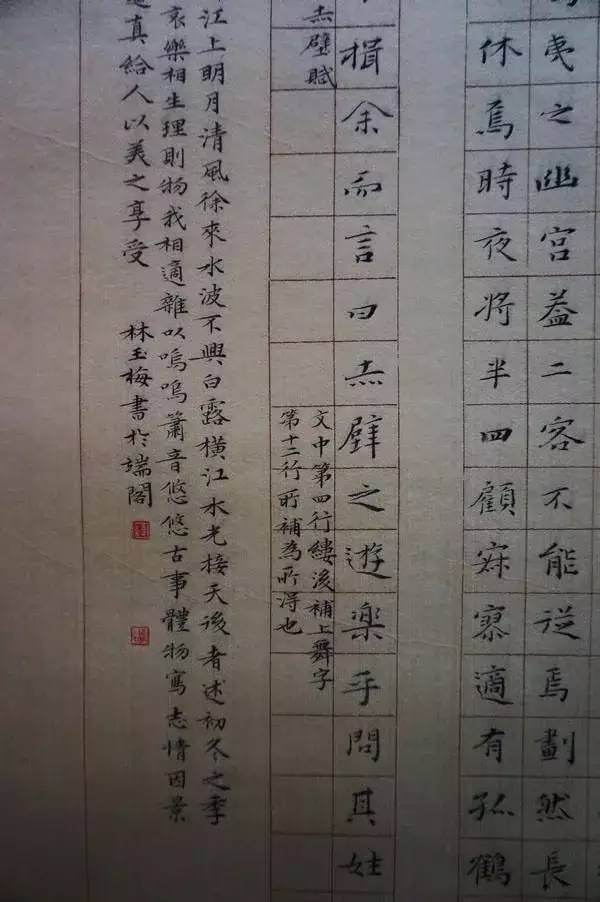 夷之幽宮蓋二客不能從焉劃然長
休焉時夜將半四顧寂寥適有孤鶴
揖余而言曰赤壁之遊樂乎問其姓
赤壁賦
文中第四行縷後補上舞字
第十二行所補為所得也
江上明月清風徐來水波不興白露橫江水光接天後者述初冬之季
哀樂相生理則物我相適雜以嗚嗚簫音悠悠古事體物寫志情因景
真給人以美之享受 林玉梅書於端閣